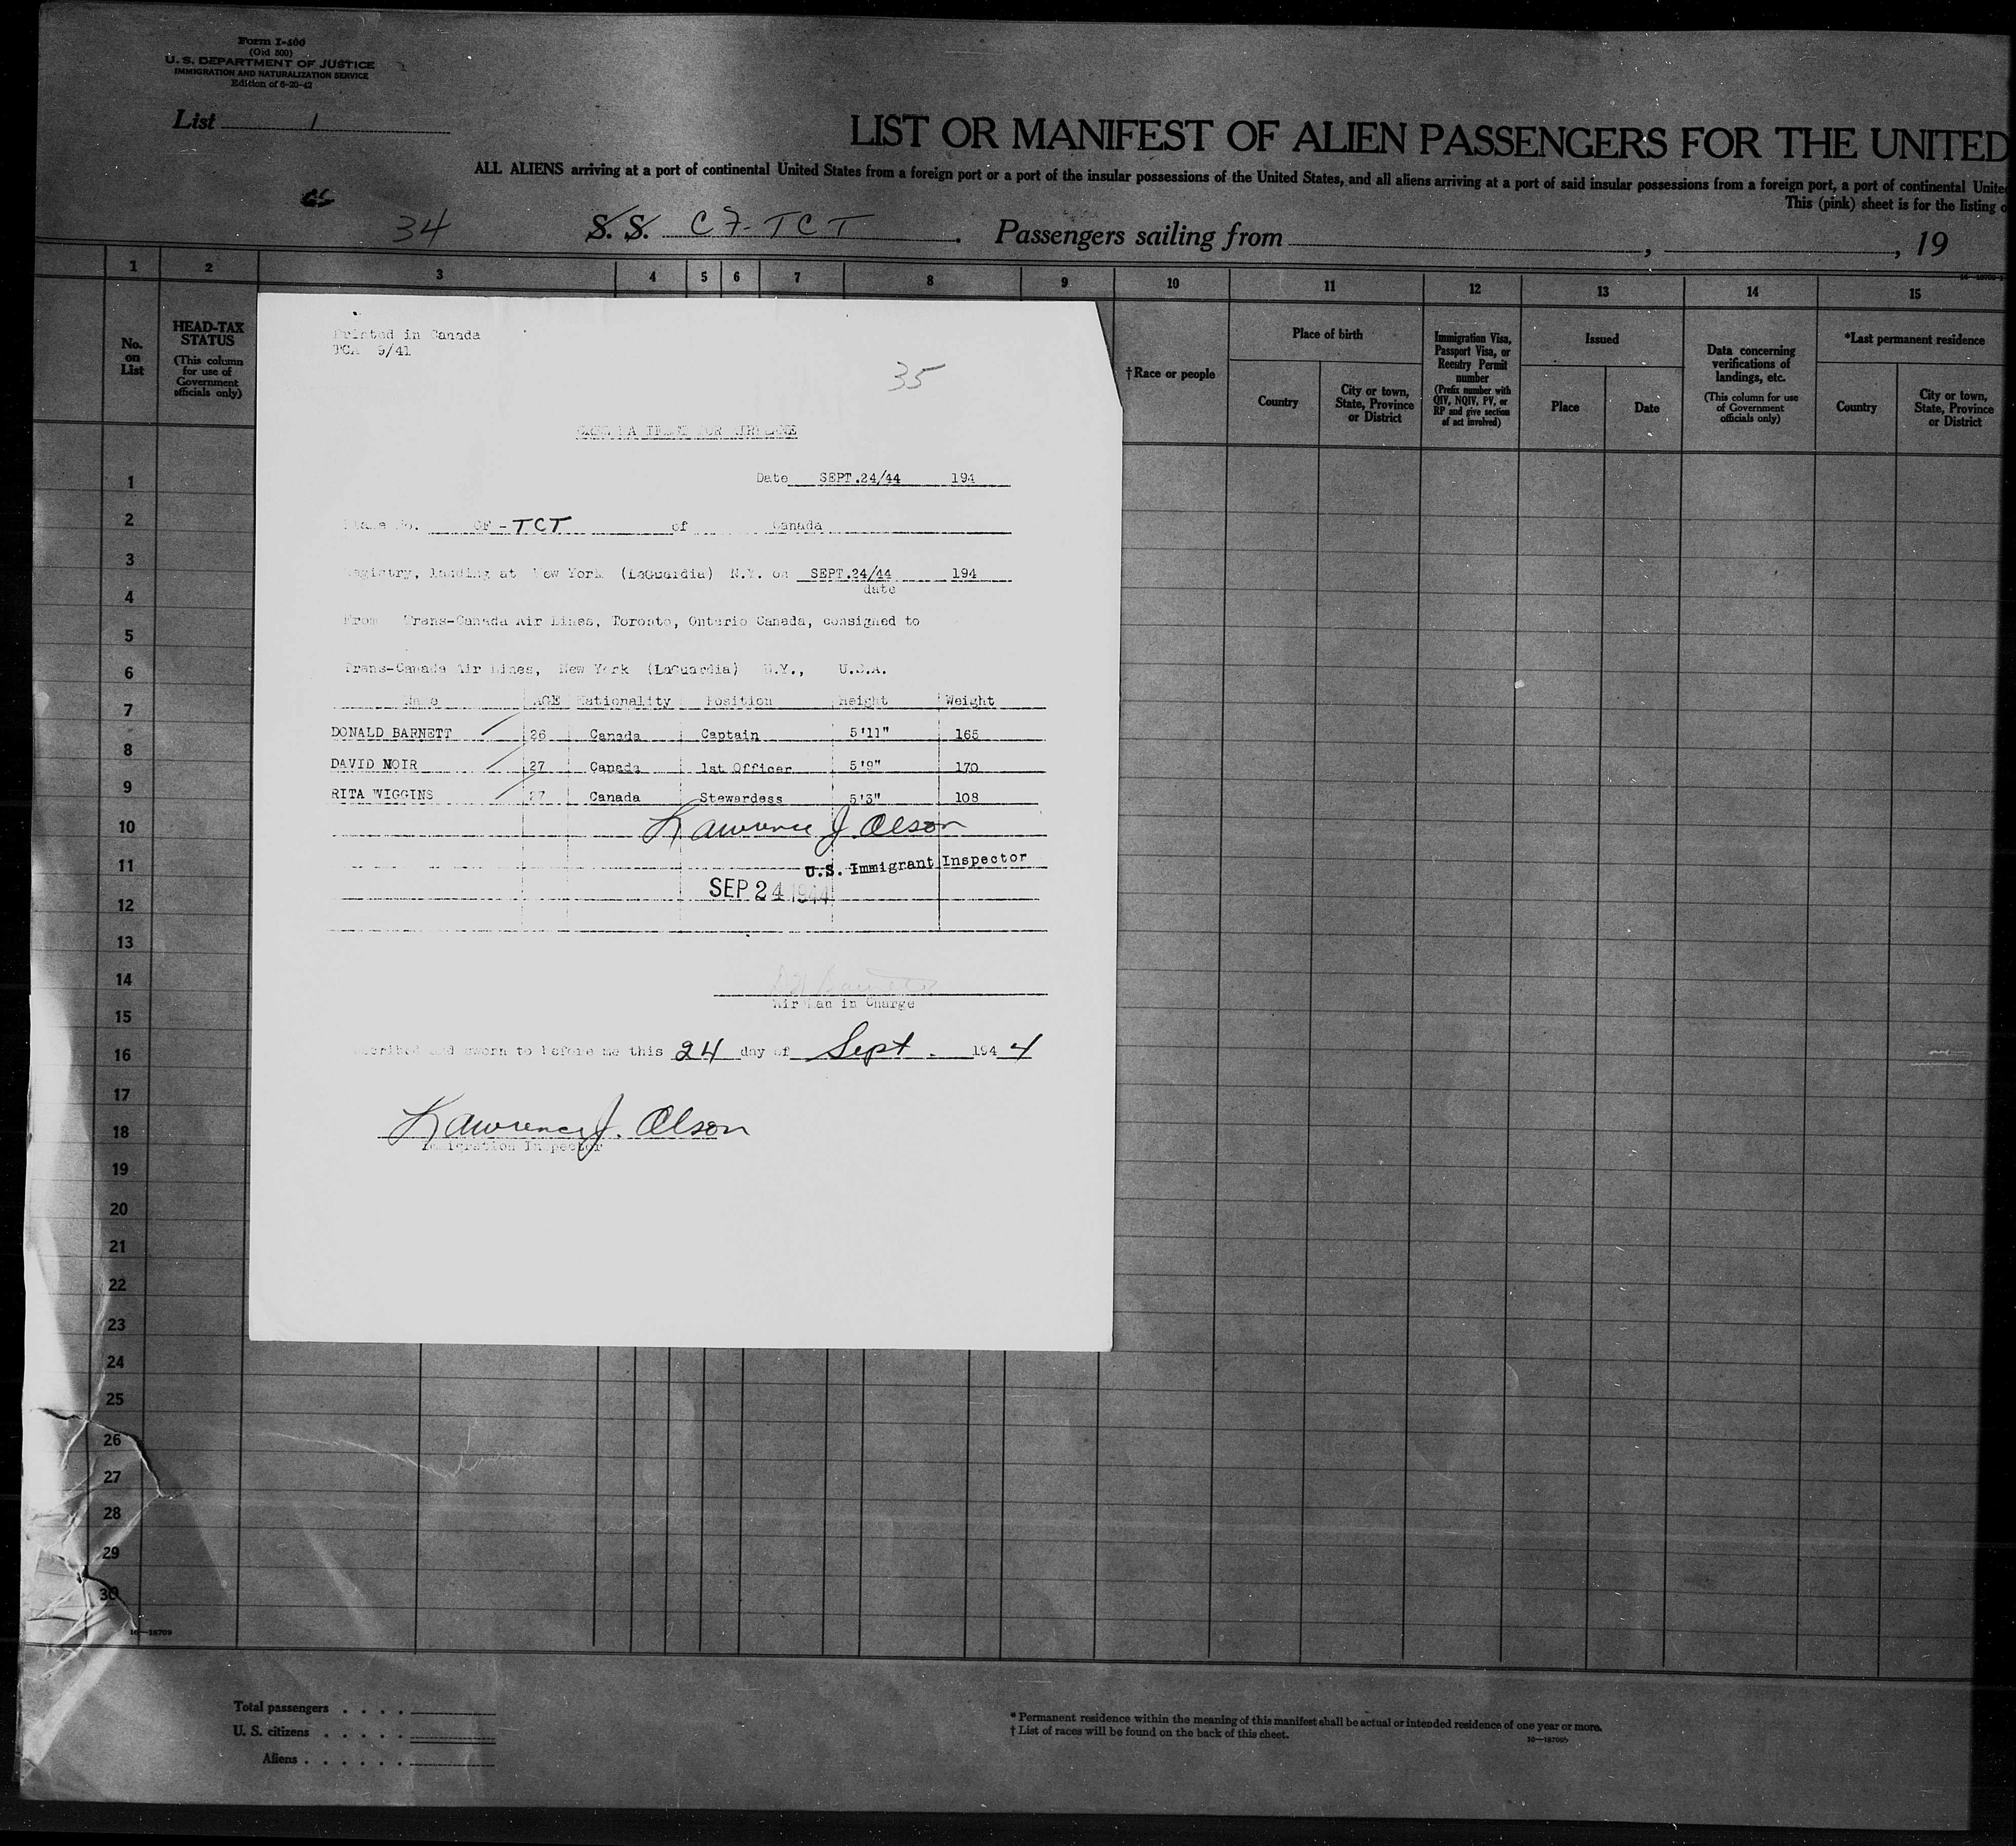 Form I-400
(Old 500)
U. S. DEPARTMENT OF JUSTICE
IMMIGRATION AND NATURALIZATION SERVICE
Edition of 6-20-42
List 1
LIST OR MANIFEST OF ALIEN PASSENGERS FOR THE UNITED
ALL ALIENS arriving at a port of continental United States from a foreign port or a port of the insular possessions of the United States, and all aliens arriving at a port of said insular possessions from a foreign port, a port of continental Unite
This (pink) sheet is for the listing o
34 S. S. CF-TCT. Passengers sailing from , , 19
1 2 3 4 5 6 7 8 9 10 11 12 13 14 15
No. on List
HEAD-TAX STATUS
(This column for use of Government officials only)
† Race or people
Place of birth
Country
City or town, State, Province or District
Immigration Visa, Passport Visa, or Reentry Permit number
(Prefix number with QIV, NQIV, PV, or RP and give section of act involved)
Issued
Place
Date
Data concerning verifications of landings, etc.
(This column for use of Government officials only)
*Last permanent residence
Country
City or town, State, Province or District
Printed in Canada
TCA 9/41
35
FOR AIRPLANE
Date SEPT.24/44 194
Plane No. CF-TCT of Canada
Registry, landing at New York (LaGuardia) N.Y. on SEPT.24/44 194
date
From Trans-Canada Air Lines, Toronto, Ontario Canada, consigned to
Trans-Canada Air Lines, New York (LaGuardia) N.Y., U.S.A.
Name AGE Nationality Position Height Weight
DONALD BARNETT 26 Canada Captain 5'11" 165
DAVID MOIR 27 Canada 1st Officer 5'9" 170
RITA WIGGINS 27 Canada Stewardess 5'3" 108
Lawrence J. Olson
U.S. Immigrant Inspector
SEP 24 1944
Barnett
Air Man in Charge
and sworn to before me this 24 day of Sept. 1944
Lawrence J. Olson
Immigration Inspector
1
2
3
4
5
6
7
8
9
10
11
12
13
14
15
16
17
18
19
20
21
22
23
24
25
26
27
28
29
30
16—18709
Total passengers . . . .
U. S. citizens . . . . .
Aliens . . . . . .
* Permanent residence within the meaning of this manifest shall be actual or intended residence of one year or more.
† List of races will be found on the back of this sheet.